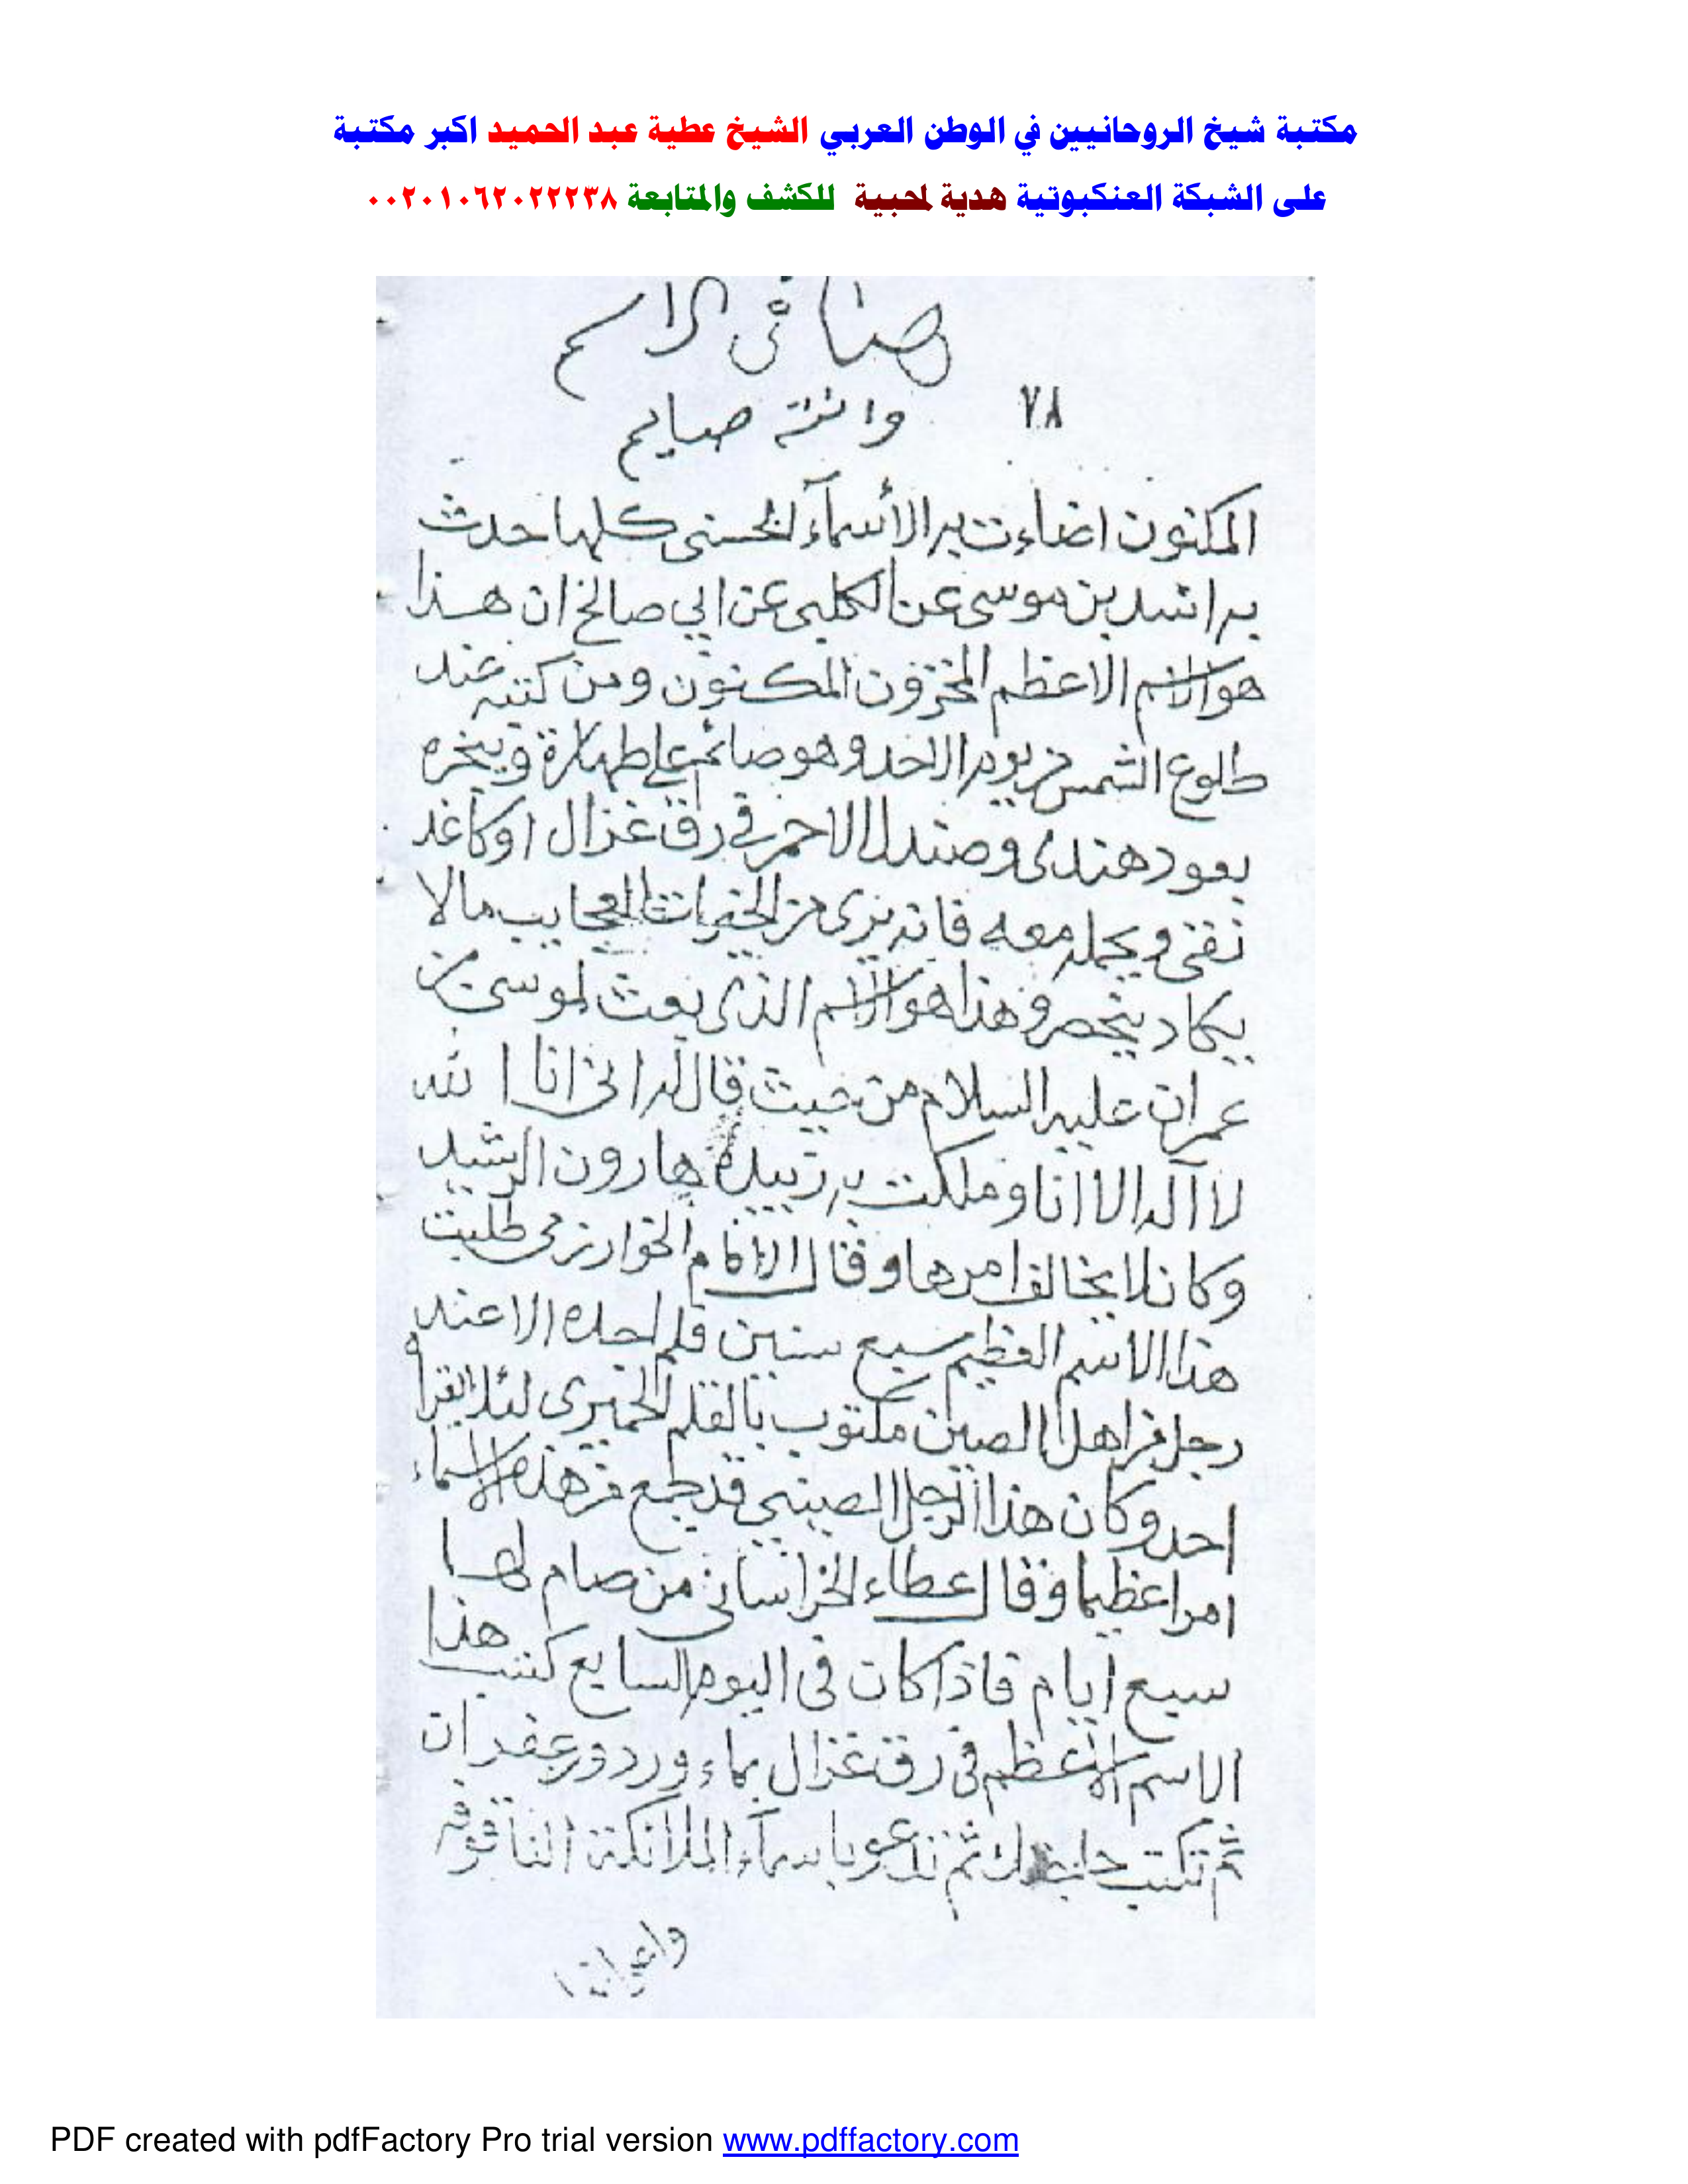 مكتبة شيخ الروحانيين في الوطن العربي الشيخ عطية عبد الحميد اكبر مكتبة
على الشبكة العنكبوتية هدية لمحبية للكشف والمتابعة ٠٠٢٠١٠٦٢٠٢٢٢٣٨
هنا في الاسم
٧٨
وانته صايم
المكنون اضاءت به الأسمآء الحسنى كلها حدث
به راشد بن موسى عن الكلبى عن ابي صالح ان هذا
هو الاسم الاعظم المخزون المكنون ومن كتبه عند
طلوع الشمس من يوم الاحد وهو صائم على طهارة وبخره
بعود هندى وصندل الاحمر في رق غزال او كاغد
نقى ويحمله معه فانه يرى من الخيرات العجايب مالا
يكاد ينحصر وهذا هو الاسم الذى بعث لموسى بن
عمران عليه السلام من حيث قال له انى انا الله
لا آله الا انا وملكت به زبيدة هارون الرشيد
وكان لا يخالف امرها وقال الامام الخوارزمى طلبت
هذا الاسم العظيم سبع سنين فلم اجده الا عند
رجل من اهل الصين مكتوب بالقلم الحميرى لئلا يقرأه
احد وكان هذا الرجل الصينى قد جمع من هذه الاسماء
امرا عظيما وقال عطاء الخراسانى من صام لها
سبع أيام فاذا كان فى اليوم السابع كتب هذا
الاسم الاعظم فى رق غزال بماء ورد وزعفران
ثم تكتب ثم تدعو باسمآء الملائكة